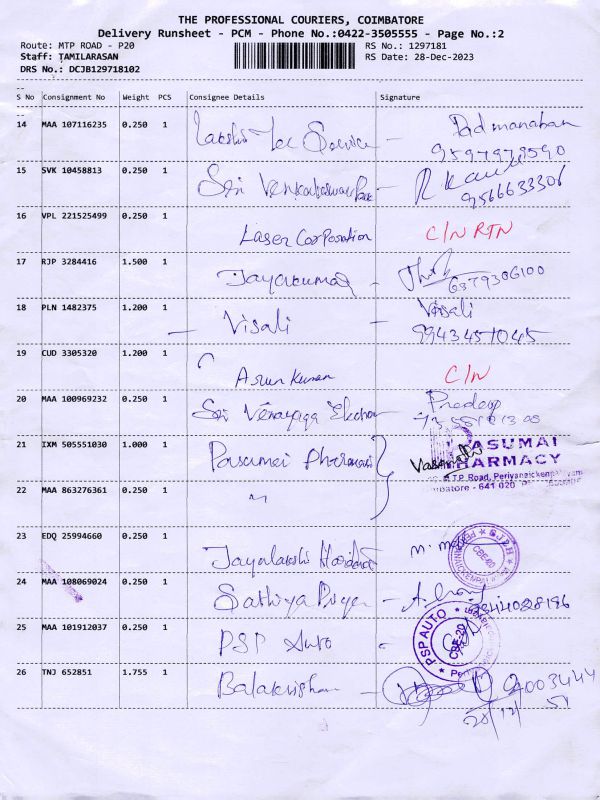 THE PROFESSIONAL COURIERS, COIMBATORE
Delivery Runsheet - PCM - Phone No.:0422-3505555 - Page No.:2
Route: MTP ROAD - P20
RS No.: 1297181
Staff: TAMILARASAN
RS Date: 28-Dec-2023
DRS No.: DCJB129718102
S No Consignment No Weight PCS Consignee Details Signature
14 MAA 107116235 0.250 1 Lakshmi Tec Service - Padmanaban
9597978590
15 SVK 10458813 0.250 1 Sri Venkateswara - R
9566633306
16 VPL 221525499 0.250 1 Laser Corporation C/N RTN
17 RJP 3284416 1.500 1 Jayakumar - 6379306100
18 PLN 1482375 1.200 1 - Visali - Visali
9943457045
19 CUD 3305320 1.200 1 Arun Kumar C/N
20 MAA 100969232 0.250 1 Sri Vinayaga - Pradeep
21 IXM 505551030 1.000 1 Pasumai Pharmacy PASUMAI
PHARMACY
M.T.P. Road,
- 641 020
22 MAA 863276361 0.250 1 "
23 EDQ 25994660 0.250 1 Jayalakshmi
CBE-20
24 MAA 108069024 0.250 1 Sathiya Priya -
25 MAA 101912037 0.250 1 PSP Auto - PSP AUTO
CBE-20
26 TNJ 652851 1.755 1 Balakrishnan -
28/12